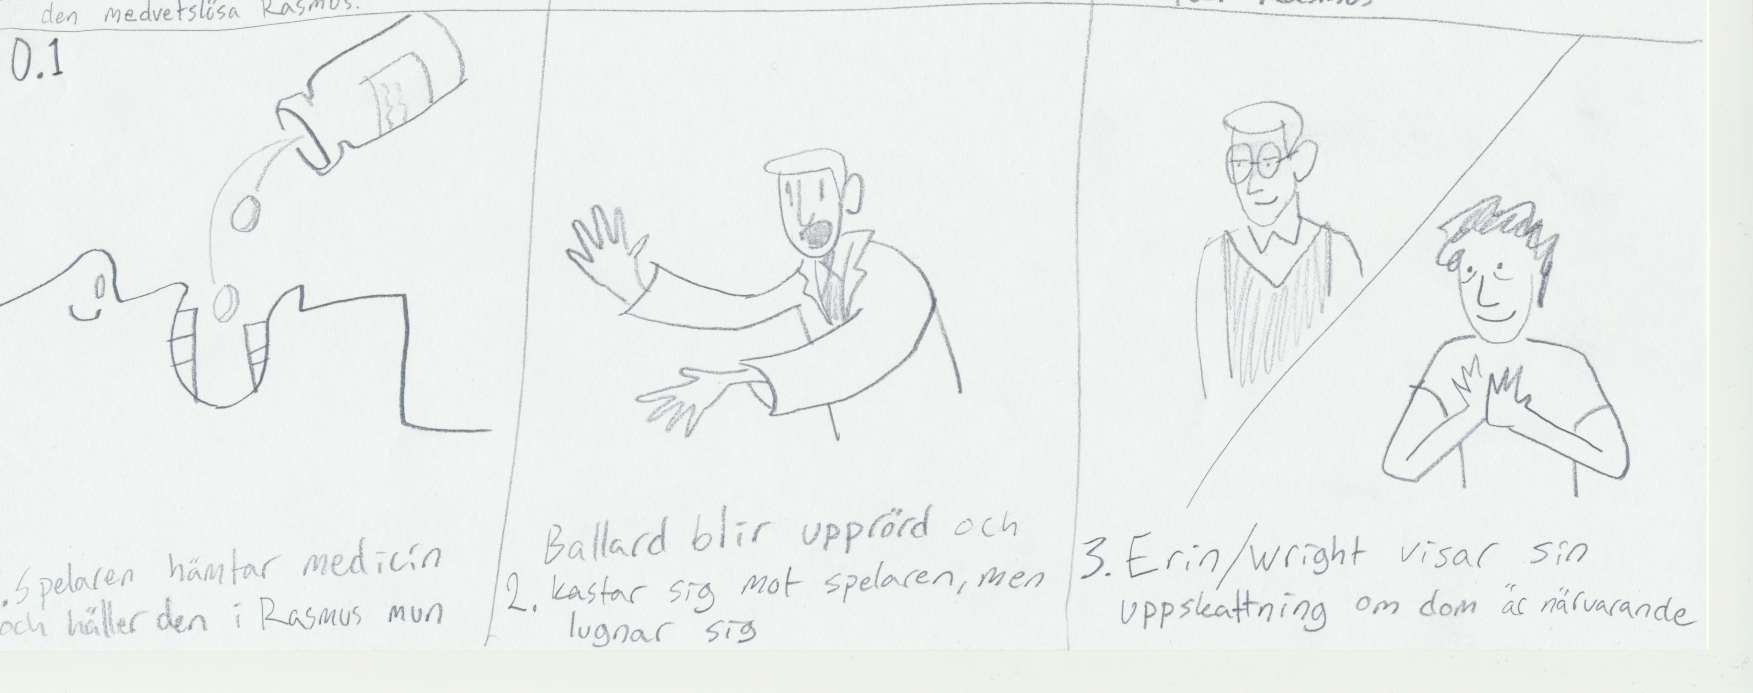 den medvetslösa Rasmus.
Rasmus
0.1
.Spelaren hämtar medicin
och häller den i Rasmus mun
Ballard blir upprörd och
2. kastar sig mot spelaren, men
lugnar sig
3. Erin/Wright visar sin
uppskattning om dom är närvarande